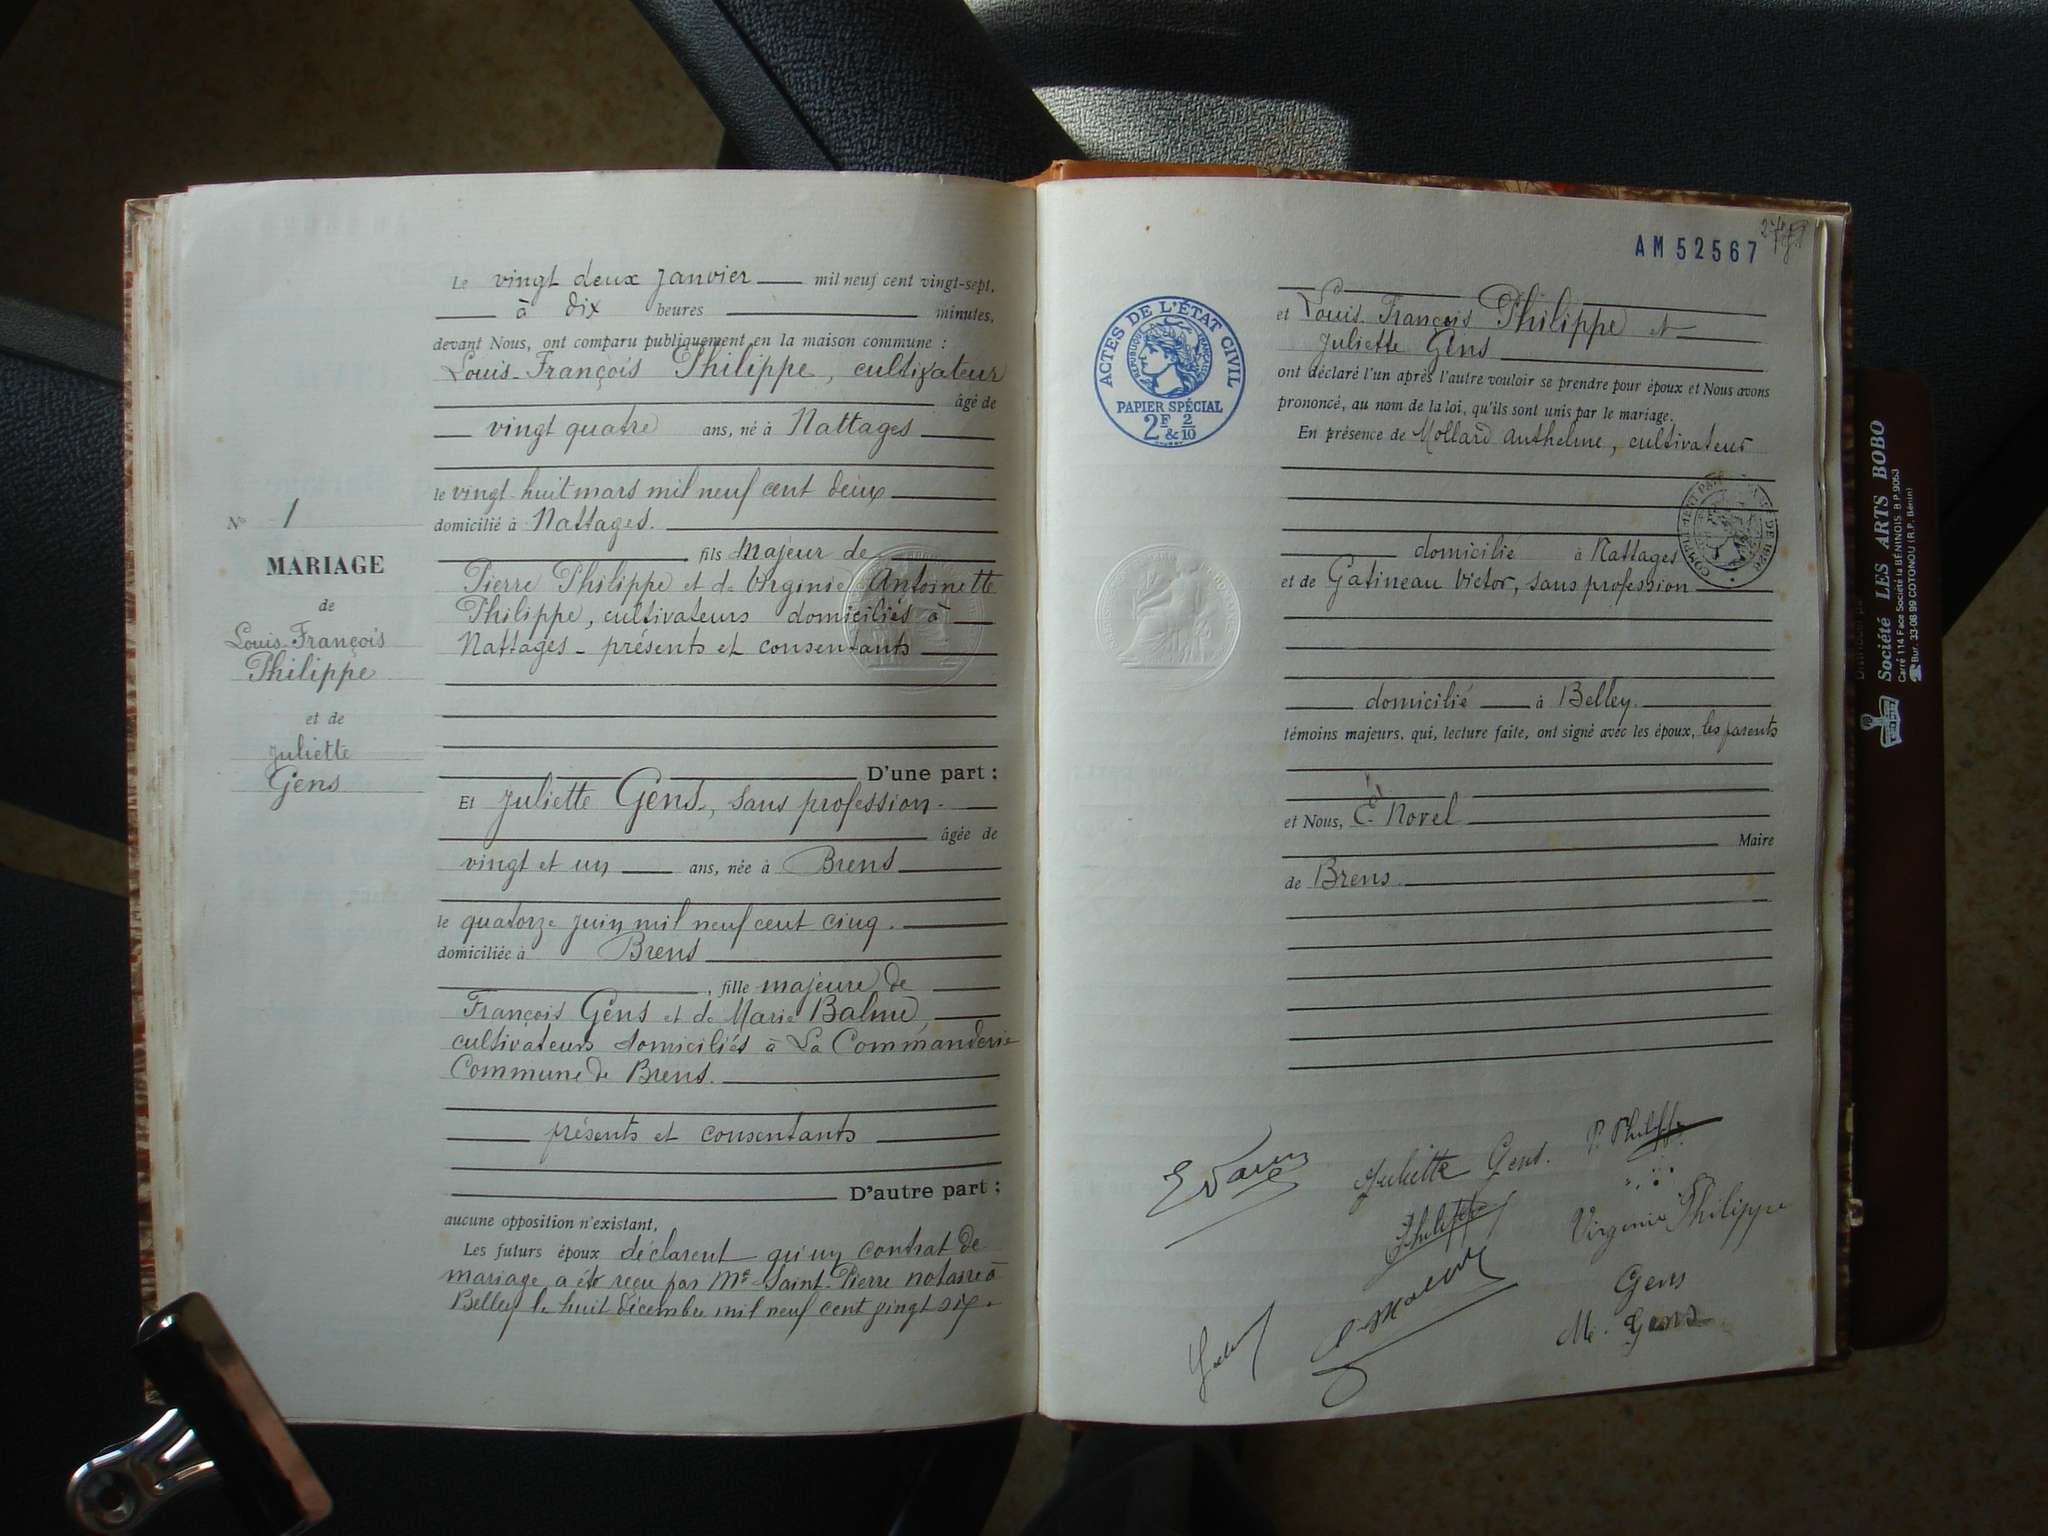 Nº 1
MARIAGE
de
Louis-François
Philippe
et de
Juliette
Gens
Le vingt deux Janvier mil neuf cent vingt-sept,
à dix heures minutes,
devant Nous, ont comparu publiquement en la maison commune :
Louis-François Philippe, cultivateur
âgé de
vingt quatre ans, né à Nattages
le vingt-huit mars mil neuf cent deux
domicilié à Nattages.
fils Majeur de
Pierre Philippe et de Virginie Antoinette
Philippe, cultivateurs domiciliés à
Nattages - présents et consentants
D'une part :
Et Juliette Gens, sans profession -
âgée de
vingt et un ans, née à Brens
le quatorze juin mil neuf cent cinq.
domiciliée à Brens
, fille majeure de
François Gens et de Marie Balme,
cultivateurs domiciliés à La Commanderie
Commune de Brens.
présents et consentants
D'autre part ;
aucune opposition n'existant,
Les futurs époux déclarent qu'un contrat de
mariage a été reçu par Me Saint-Pierre notaire à
Belley le huit décembre mil neuf cent vingt six.
AM 52567
ACTES DE L'ÉTAT CIVIL
RÉPUBLIQUE FRANÇAISE
PAPIER SPÉCIAL
2F & 2/10
et Louis-François Philippe et
Juliette Gens
ont déclaré l'un après l'autre vouloir se prendre pour époux et Nous avons
prononcé, au nom de la loi, qu'ils sont unis par le mariage.
En présence de Mollard Anthelme, cultivateur
domicilié à Nattages
et de Gatineau Victor, sans profession
domicilié à Belley.
témoins majeurs, qui, lecture faite, ont signé avec les époux, les parents
et Nous, Et Novel
Maire
de Brens.
Juliette Gens.
P. Philippe
Philippe
Virginie Philippe
Gens
M. Gens
Société LES ARTS BOBO
Carré 114 Face Société la BÉNINOIS B.P. 9053
Bur. 33-08 99 COTONOU (R.P. Bénin)